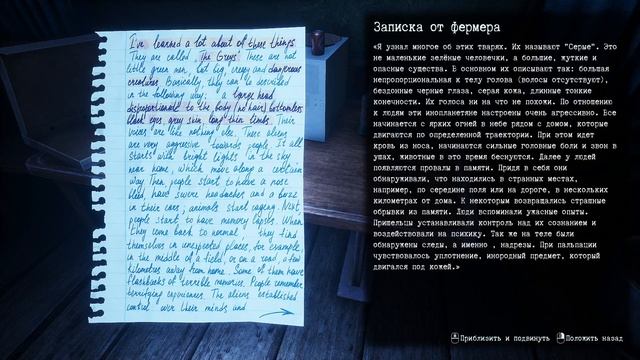 I've learned a lot about of these things.
They are called „The Greys". These are not
little green men, but big, creepy and dangerous
creatures. Basically, they can be described
in the following way: a large head
disproportionate to the body (no hair), bottomless
black eyes, grey skin, long thin limbs. Their
voices are like nothing else. These aliens
are very aggressive towards people. It all
starts with bright lights in the sky
near home, which move along a certain
way. Then people start to have a nose
bleed, have severe headaches and a buzz
in their ears, animals start raging. Next,
people start to have memory lapses. When
they come back to normal, they find
themselves in unexpected places, for example
in the middle of a field, or on a road, a few
kilometres away from home. Some of them have
flashbacks of terrible memories. People remember
terrifying experiences. The aliens established
control over their minds and
Записка от фермера
«Я узнал многое об этих тварях. Их называют "Серые". Это
не маленькие зелёные человечки, а большие, жуткие и
опасные существа. В основном их описывают так: большая
непропорциональная к телу голова (волосы отсутствуют),
бездонные черные глаза, серая кожа, длинные тонкие
конечности. Их голоса ни на что не похожи. По отношению
к людям эти инопланетяне настроены очень агрессивно. Все
начинается с ярких огней в небе рядом с домом, которые
двигаются по определенной траектории. При этом идет
кровь из носа, начинаются сильные головные боли и звон в
ушах, животные в это время беснуются. Далее у людей
появляются провалы в памяти. Придя в себя они
обнаруживали, что находились в странных местах,
например, по середине поля или на дороге, в нескольких
километрах от дома. К некоторым возвращались страшные
обрывки из памяти. Люди вспоминали ужасные опыты.
Пришельцы устанавливали контроль над их сознанием и
воздействовали на психику. Так же на теле были
обнаружены следы, а именно , надрезы. При пальпации
чувствовалось уплотнение, инородный предмет, который
двигался под кожей.»
Приблизить и подвинуть Положить назад